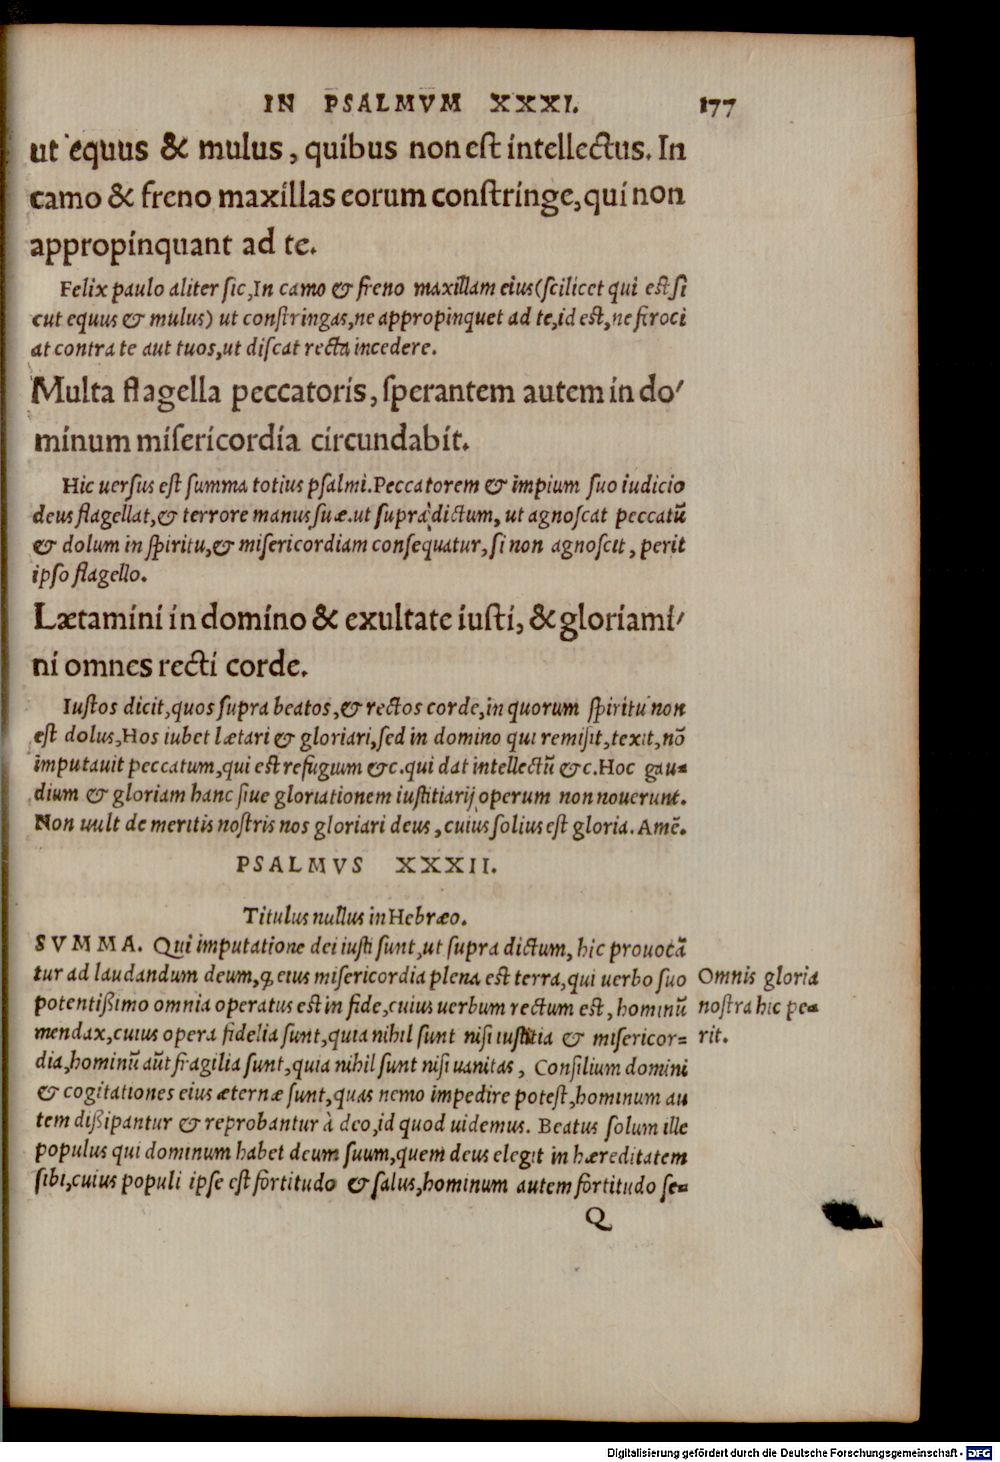 IN PSALMVM XXXI. 177
ut equus & mulus, quibus non est intellectus. In
camo & freno maxillas eorum constringe, qui non
appropinquant ad te.
Felix paulo aliter sic, In camo & freno maxillam eius (scilicet qui est si
cut equus & mulus) ut constringas, ne appropinquet ad te, id est, ne feroci
at contra te aut tuos, ut discat recta incedere.
Multa flagella peccatoris, sperantem autem in do/
minum misericordia circundabit.
Hic uersus est summa totius psalmi. Peccatorem & impium suo iudicio
deus flagellat, & terrore manus suæ. ut supra dictum, ut agnoscat peccatū
& dolum in spiritu, & misericordiam consequatur, si non agnoscit, perit
ipso flagello.
Lætamini in domino & exultate iusti, & gloriami/
ni omnes recti corde.
Iustos dicit, quos supra beatos, & rectos corde, in quorum spiritu non
est dolus, Hos iubet lætari & gloriari, sed in domino qui remisit, texit, nō
imputauit peccatum, qui est refugium &c. qui dat intellectū &c. Hoc gau=
dium & gloriam hanc siue gloriationem iustitiarij operum non nouerunt.
Non uult de meritis nostris nos gloriari deus, cuius solius est gloria. Amē.
PSALMVS XXXII.
Titulus nullus in Hebræo.
SVMMA. Qui imputatione dei iusti sunt, ut supra dictum, hic prouocā
tur ad laudandum deum, ꝙ eius misericordia plena est terra, qui uerbo suo
potentißimo omnia operatus est in fide, cuius uerbum rectum est, hominū
mendax, cuius opera fidelia sunt, quia nihil sunt nisi iustitia & misericor=
dia, hominū aūt fragilia sunt, quia nihil sunt nisi uanitas, Consilium domini
& cogitationes eius æternæ sunt, quas nemo impedire potest, hominum au
tem dißipantur & reprobantur à deo, id quod uidemus. Beatus solum ille
populus qui dominum habet deum suum, quem deus elegit in hæreditatem
sibi, cuius populi ipse est fortitudo & salus, hominum autem fortitudo se=
Omnis gloria
nostra hic pe=
rit.
Q
Digitalisierung gefördert durch die Deutsche Forschungsgemeinschaft - DFG